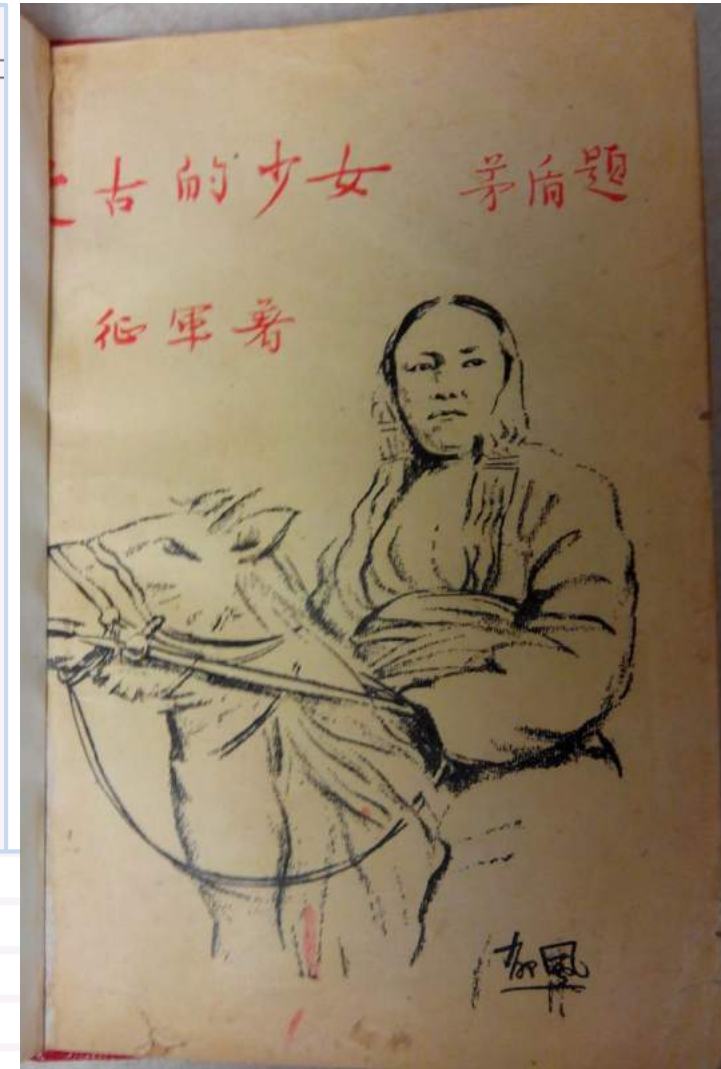 古的少女 茅盾題
征軍著